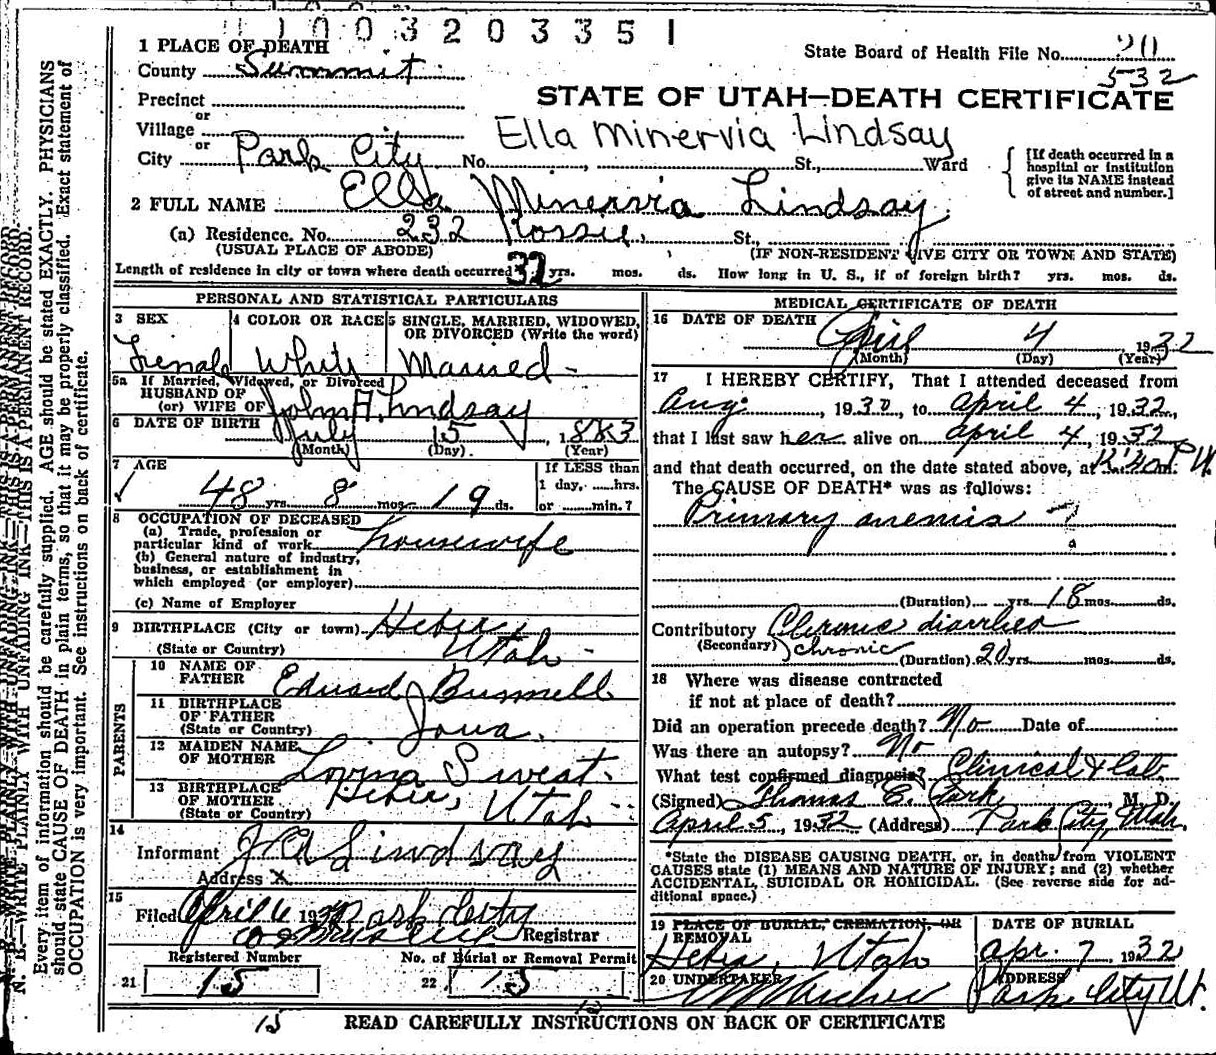 1 0 0 3 2 0 3 3 5 1
1 PLACE OF DEATH
State Board of Health File No. 20
County Summit
532
Precinct
STATE OF UTAH—DEATH CERTIFICATE
or
Village
Ella Minervia Lindsay
or
City Park City No. St., Ward
[If death occurred in a hospital or institution give its NAME instead of street and number.]
2 FULL NAME Ella Minervia Lindsay
(a) Residence. No. 232 Rossie St.
(USUAL PLACE OF ABODE) (IF NON-RESIDENT GIVE CITY OR TOWN AND STATE)
Length of residence in city or town where death occurred 32 yrs. mos. ds. How long in U. S., if of foreign birth? yrs. mos. ds.
PERSONAL AND STATISTICAL PARTICULARS
3 SEX
Female
4 COLOR OR RACE
White
5 SINGLE, MARRIED, WIDOWED, OR DIVORCED (Write the word)
Married
5a If Married, Widowed, or Divorced
HUSBAND OF
(or) WIFE OF John A. Lindsay
6 DATE OF BIRTH
July 15, 1883
(Month) (Day) (Year)
7 AGE
48 yrs. 8 mos. 19 ds.
If LESS than
1 day, hrs.
or min.?
8 OCCUPATION OF DECEASED
(a) Trade, profession or
particular kind of work housewife
(b) General nature of industry,
business, or establishment in
which employed (or employer)
(c) Name of Employer
9 BIRTHPLACE (City or town) Heber,
(State or Country) Utah
PARENTS
10 NAME OF FATHER Edward Bunnell
11 BIRTHPLACE OF FATHER (State or Country) Iowa.
12 MAIDEN NAME OF MOTHER Lovina Sweat.
13 BIRTHPLACE OF MOTHER (State or Country) Heber, Utah
14
Informant J A Lindsay
Address X
15
Filed April 6 1932 Park City
Registrar
Registered Number No. of Burial or Removal Permit
21 15 22 15
MEDICAL CERTIFICATE OF DEATH
16 DATE OF DEATH
April 4, 1932
(Month) (Day) (Year)
17 I HEREBY CERTIFY, That I attended deceased from
Aug, 1930, to April 4, 1932,
that I last saw her alive on April 4, 1932
and that death occurred, on the date stated above, at
The CAUSE OF DEATH* was as follows:
Primary anemia ?
(Duration) yrs. 18 mos. ds.
Contributory Chronic diarrhea
(Secondary) chronic
(Duration) 20 yrs. mos. ds.
18 Where was disease contracted
if not at place of death?
Did an operation precede death? No Date of
Was there an autopsy? No
What test confirmed diagnosis? Clinical & Lab.
(Signed) Thomas E. Park, M. D.
April 5, 1932 (Address) Park City, Utah.
*State the DISEASE CAUSING DEATH, or, in deaths from VIOLENT
CAUSES state (1) MEANS AND NATURE OF INJURY; and (2) whether
ACCIDENTAL, SUICIDAL OR HOMICIDAL. (See reverse side for additional space.)
19 PLACE OF BURIAL, CREMATION, OR REMOVAL
Heber, Utah
DATE OF BURIAL
Apr. 7, 1932
20 UNDERTAKER
ADDRESS
Park City Ut.
15
READ CAREFULLY INSTRUCTIONS ON BACK OF CERTIFICATE
N. B.—WRITE PLAINLY WITH UNFADING INK—THIS IS A PERMANENT RECORD.
Every item of information should be carefully supplied. AGE should be stated EXACTLY. PHYSICIANS
should state CAUSE OF DEATH in plain terms, so that it may be properly classified. Exact statement of
OCCUPATION is very important. See instructions on back of certificate.